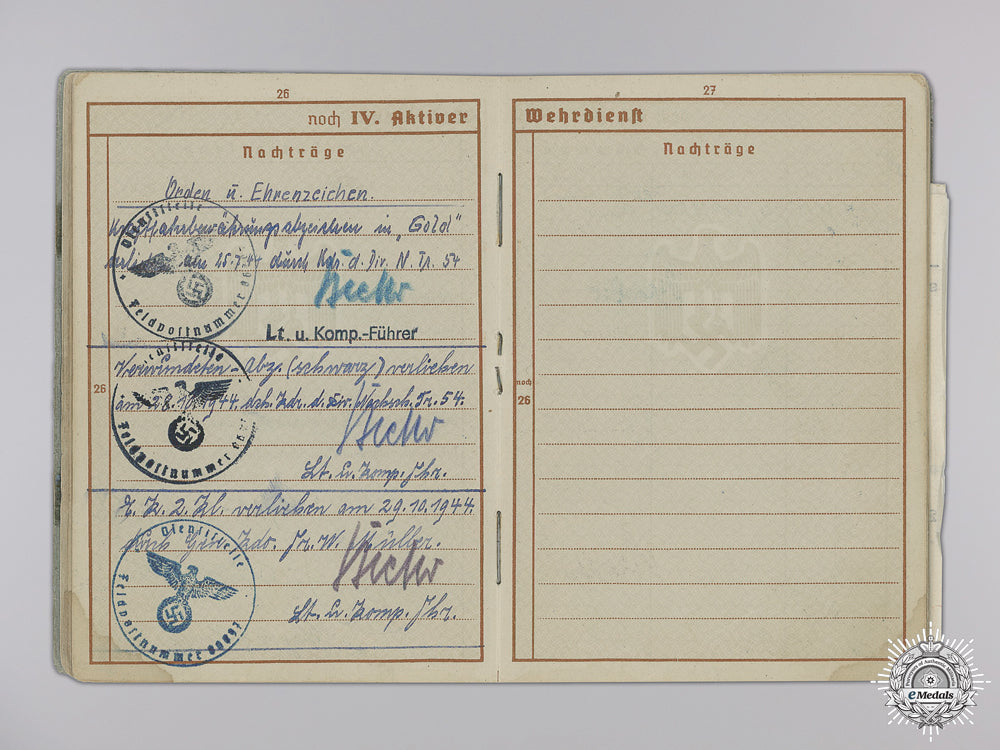 26
noch IV. Aktiver
Nachträge
Orden u. Ehrenzeichen.
Kraftfahrbewährungsabzeichen in „Gold"
verliehen am 25.7.44 durch Kdr. d. Div. N. Tr. 54
Lt. u. Komp.-Führer
Dienststelle
Feldpostnummer
26
Verwundeten-Abz. (schwarz) verliehen
am 28. 1944. dch. Kdr. d. Div. Nachsch. Tr. 54.
Lt. u. Komp. Fhr.
Dienststelle
Feldpostnummer
E. K. 2. Kl. verliehen am 29.10.1944.
durch Kdr. Müller.
Lt. u. Komp. Fhr.
Dienststelle
Feldpostnummer
27
Wehrdienst
Nachträge
noch
26
eMedals